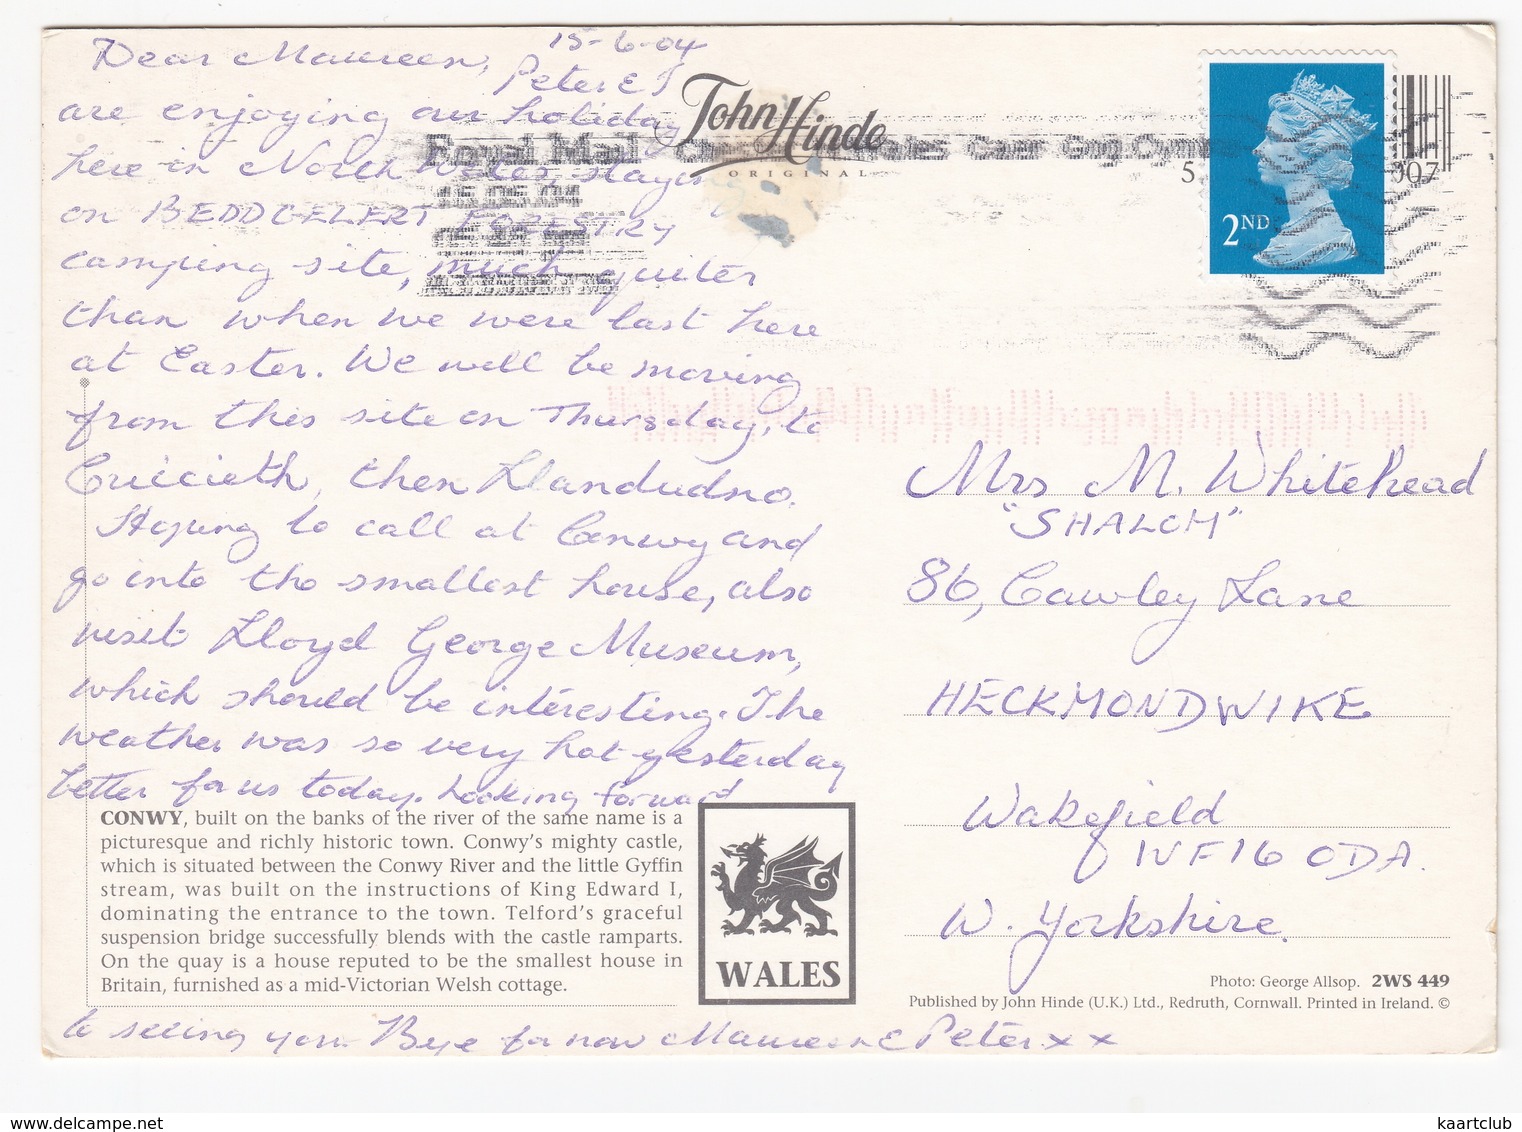 15-6-04
Dear Maureen,
Peter & I
are enjoying our holiday
here in North Wales, staying
on BEDDGELERT FORESTRY
camping site, much quiter
than when we were last here
at Easter. We will be moving
from this site on Thursday, to
Criccieth, then Llandudno.
Hoping to call at Conwy and
go into the smallest house, also
visit Lloyd George Museum,
which should be interesting. The
weather was so very hot yesterday
better for us today. Looking forward
to seeing you. Bye for now Maureen & Peter x x
John Hinde
ORIGINAL
Royal Mail
15.06.04
5
007
2ND
Mrs M. Whitehead
"SHALOM"
86, Cawley Lane
HECKMONDWIKE
Wakefield
WF16 0DA.
W. Yorkshire.
CONWY, built on the banks of the river of the same name is a
picturesque and richly historic town. Conwy's mighty castle,
which is situated between the Conwy River and the little Gyffin
stream, was built on the instructions of King Edward I,
dominating the entrance to the town. Telford's graceful
suspension bridge successfully blends with the castle ramparts.
On the quay is a house reputed to be the smallest house in
Britain, furnished as a mid-Victorian Welsh cottage.
WALES
Photo: George Allsop. 2WS 449
Published by John Hinde (U.K.) Ltd., Redruth, Cornwall. Printed in Ireland. ©
www.delcampe.net
kaartclub